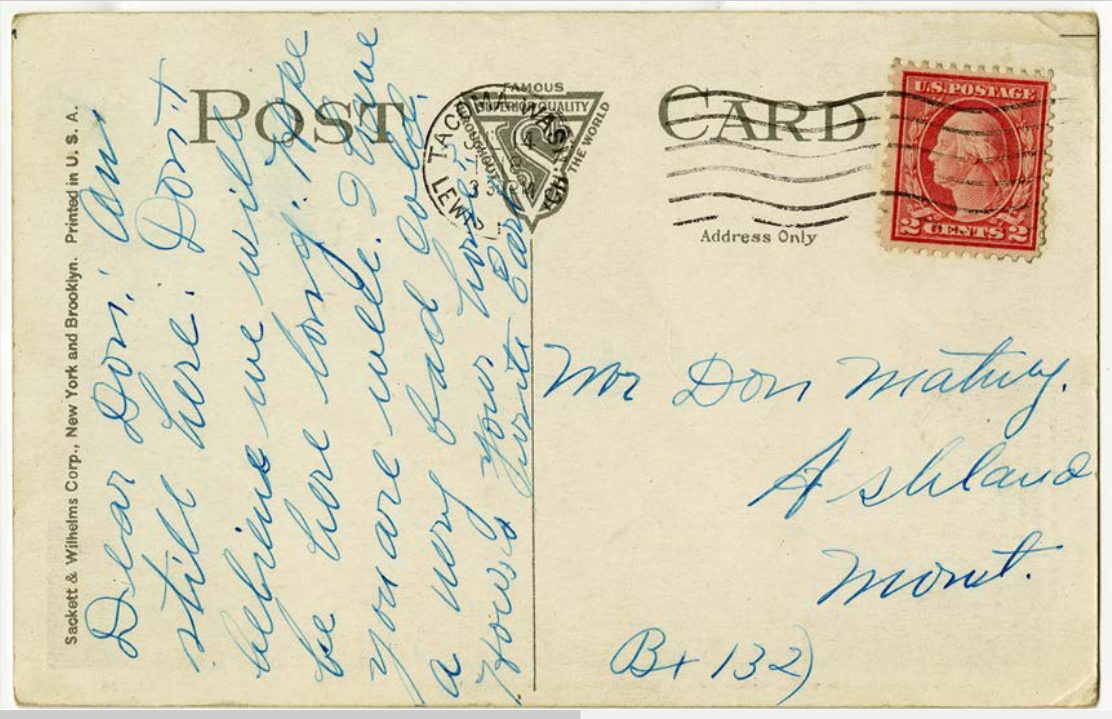 POST CARD
FAMOUS
SUPERIOR QUALITY
THROUGHOUT
THE WORLD
TACOMA, WASH.
LEWIS
Address Only
U.S. POSTAGE
2 CENTS 2
Sackett & Wilhelms Corp., New York and Brooklyn. Printed in U. S. A.
Dear Don: am
still here. Don't
believe we will
be here long. Hope
you are well. I have
a very bad cold.
How's your
write
Mr Don
Ashland
Mont.
Bx 132)